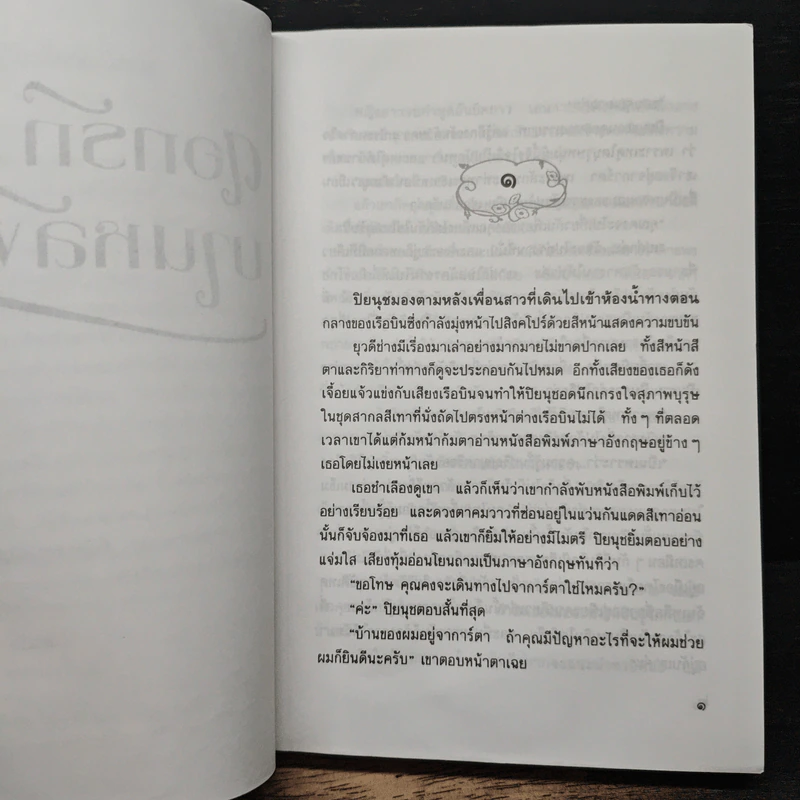 ๑
ปิยนุชมองตามหลังเพื่อนสาวที่เดินไปเข้าห้องน้ำทางตอน
กลางของเรือบินซึ่งกำลังมุ่งหน้าไปสิงคโปร์ด้วยสีหน้าแสดงความขบขัน
ยุวดีช่างมีเรื่องมาเล่าอย่างมากมายไม่ขาดปากเลย ทั้งสีหน้าสี
ตาและกิริยาท่าทางก็ดูจะประกอบกันไปหมด อีกทั้งเสียงของเธอก็ดัง
เจื้อยแจ้วแข่งกับเสียงเรือบินจนทำให้ปิยนุชอดนึกเกรงใจสุภาพบุรุษ
ในชุดสากลสีเทาที่นั่งถัดไปตรงหน้าต่างเรือบินไม่ได้ ทั้งๆ ที่ตลอด
เวลาเขาได้แต่ก้มหน้าก้มตาอ่านหนังสือพิมพ์ภาษาอังกฤษอยู่ข้างๆ
เธอโดยไม่เงยหน้าเลย
เธอชำเลืองดูเขา แล้วก็เห็นว่าเขากำลังพับหนังสือพิมพ์เก็บไว้
อย่างเรียบร้อย และดวงตาคมวาวที่ซ่อนอยู่ในแว่นกันแดดสีเทาอ่อน
นั้นก็จับจ้องมาที่เธอ แล้วเขาก็ยิ้มให้อย่างมีไมตรี ปิยนุชยิ้มตอบอย่าง
แจ่มใส เสียงทุ้มอ่อนโยนถามเป็นภาษาอังกฤษทันทีว่า
"ขอโทษ คุณคงจะเดินทางไปจาการ์ตาใช่ไหมครับ?"
"ค่ะ" ปิยนุชตอบสั้นที่สุด
"บ้านของผมอยู่จาการ์ตา ถ้าคุณมีปัญหาอะไรที่จะให้ผมช่วย
ผมก็ยินดีนะครับ" เขาตอบหน้าตาเฉย
๑